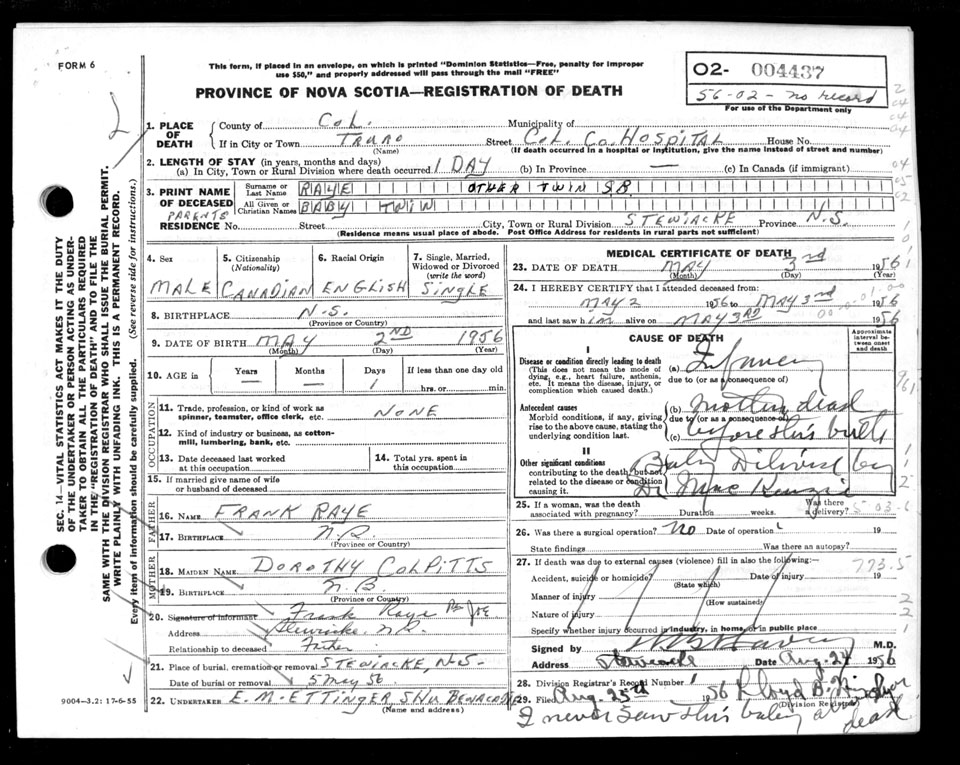 FORM 6
This form, if placed in an envelope, on which is printed "Dominion Statistics—Free, penalty for improper
use $50," and properly addressed will pass through the mail "FREE"
O2- 004437
56-02 - no record
For use of the Department only
PROVINCE OF NOVA SCOTIA—REGISTRATION OF DEATH
1. PLACE OF DEATH
County of Col. Municipality of
If in City or Town Truro Street Col. Co. Hospital House No.
(Name) (If death occurred in a hospital or institution, give the name instead of street and number)
2. LENGTH OF STAY (in years, months and days)
(a) In City, Town or Rural Division where death occurred 1 DAY (b) In Province — (c) In Canada (if immigrant)
3. PRINT NAME OF DECEASED
Surname or Last Name RAYE OTHER TWIN SB
All Given or Christian Names BABY TWIN
PARENTS
RESIDENCE No. Street City, Town or Rural Division STEWIACKE Province N.S.
(Residence means usual place of abode. Post Office Address for residents in rural parts not sufficient)
4. Sex
MALE
5. Citizenship (Nationality)
CANADIAN
6. Racial Origin
ENGLISH
7. Single, Married, Widowed or Divorced (write the word)
SINGLE
8. BIRTHPLACE N.S.
(Province or Country)
9. DATE OF BIRTH MAY 2ND 1956
(Month) (Day) (Year)
10. AGE in
Years —
Months —
Days 1
If less than one day old
hrs. or min.
OCCUPATION
11. Trade, profession, or kind of work as spinner, teamster, office clerk, etc. NONE
12. Kind of industry or business, as cotton-mill, lumbering, bank, etc.
13. Date deceased last worked at this occupation
14. Total yrs. spent in this occupation
15. If married give name of wife or husband of deceased
FATHER
16. NAME FRANK RAYE
17. BIRTHPLACE
(Province or Country)
MOTHER
18. MAIDEN NAME DOROTHY COLPITTS
19. BIRTHPLACE N.B.
(Province or Country)
20. Signature of informant Frank Raye Per JOE
Address Stewiacke, N.S.
Relationship to deceased Father
21. Place of burial, cremation or removal STEWIACKE, N.S.
Date of burial or removal 5 May 56
22. UNDERTAKER E. M. ETTINGER, SHU BENACADIE
(Name and address)
MEDICAL CERTIFICATE OF DEATH
23. DATE OF DEATH MAY 3rd 1956
(Month) (Day) (Year)
24. I HEREBY CERTIFY that I attended deceased from:
MAY 2 1956 to MAY 3rd 1956
and last saw him alive on MAY 3RD 1956
CAUSE OF DEATH
Approximate interval between onset and death
I
Disease or condition directly leading to death
(This does not mean the mode of dying, e.g., heart failure, asthenia, etc. It means the disease, injury, or complication which caused death.)
(a) Infancy
due to (or as a consequence of)
Antecedent causes
Morbid conditions, if any, giving rise to the above cause, stating the underlying condition last.
(b) mother dead
due to (or as a consequence of)
(c) before this birth
II
Other significant conditions
contributing to the death, but not related to the disease or condition causing it.
Baby Delivered by
Dr MacKenzie
25. If a woman, was the death associated with pregnancy? Duration weeks. Was there a delivery?
26. Was there a surgical operation? No Date of operation 19
State findings Was there an autopsy?
27. If death was due to external causes (violence) fill in also the following:—
773.5
Accident, suicide or homicide? Date of injury 19
(State which)
Manner of injury
(How sustained)
Nature of injury
Specify whether injury occurred in industry, in home, or in public place
Signed by M.D.
Address Stewiacke Date Aug. 24 1956
28. Division Registrar's Record Number 1
29. Filed Aug. 25th 1956 Lloyd B.
(Division Registrar)
I never saw this baby alive or
dead.
SEC. 14—VITAL STATISTICS ACT MAKES IT THE DUTY
OF THE UNDERTAKER OR PERSON ACTING AS UNDER-
TAKER TO OBTAIN ALL THE PARTICULARS REQUIRED
IN THE "REGISTRATION OF DEATH" AND TO FILE THE
SAME WITH THE DIVISION REGISTRAR WHO SHALL ISSUE THE BURIAL PERMIT.
WRITE PLAINLY WITH UNFADING INK. THIS IS A PERMANENT RECORD.
Every item of information should be carefully supplied. (See reverse side for instructions.)
9004—3.2: 17-6-55